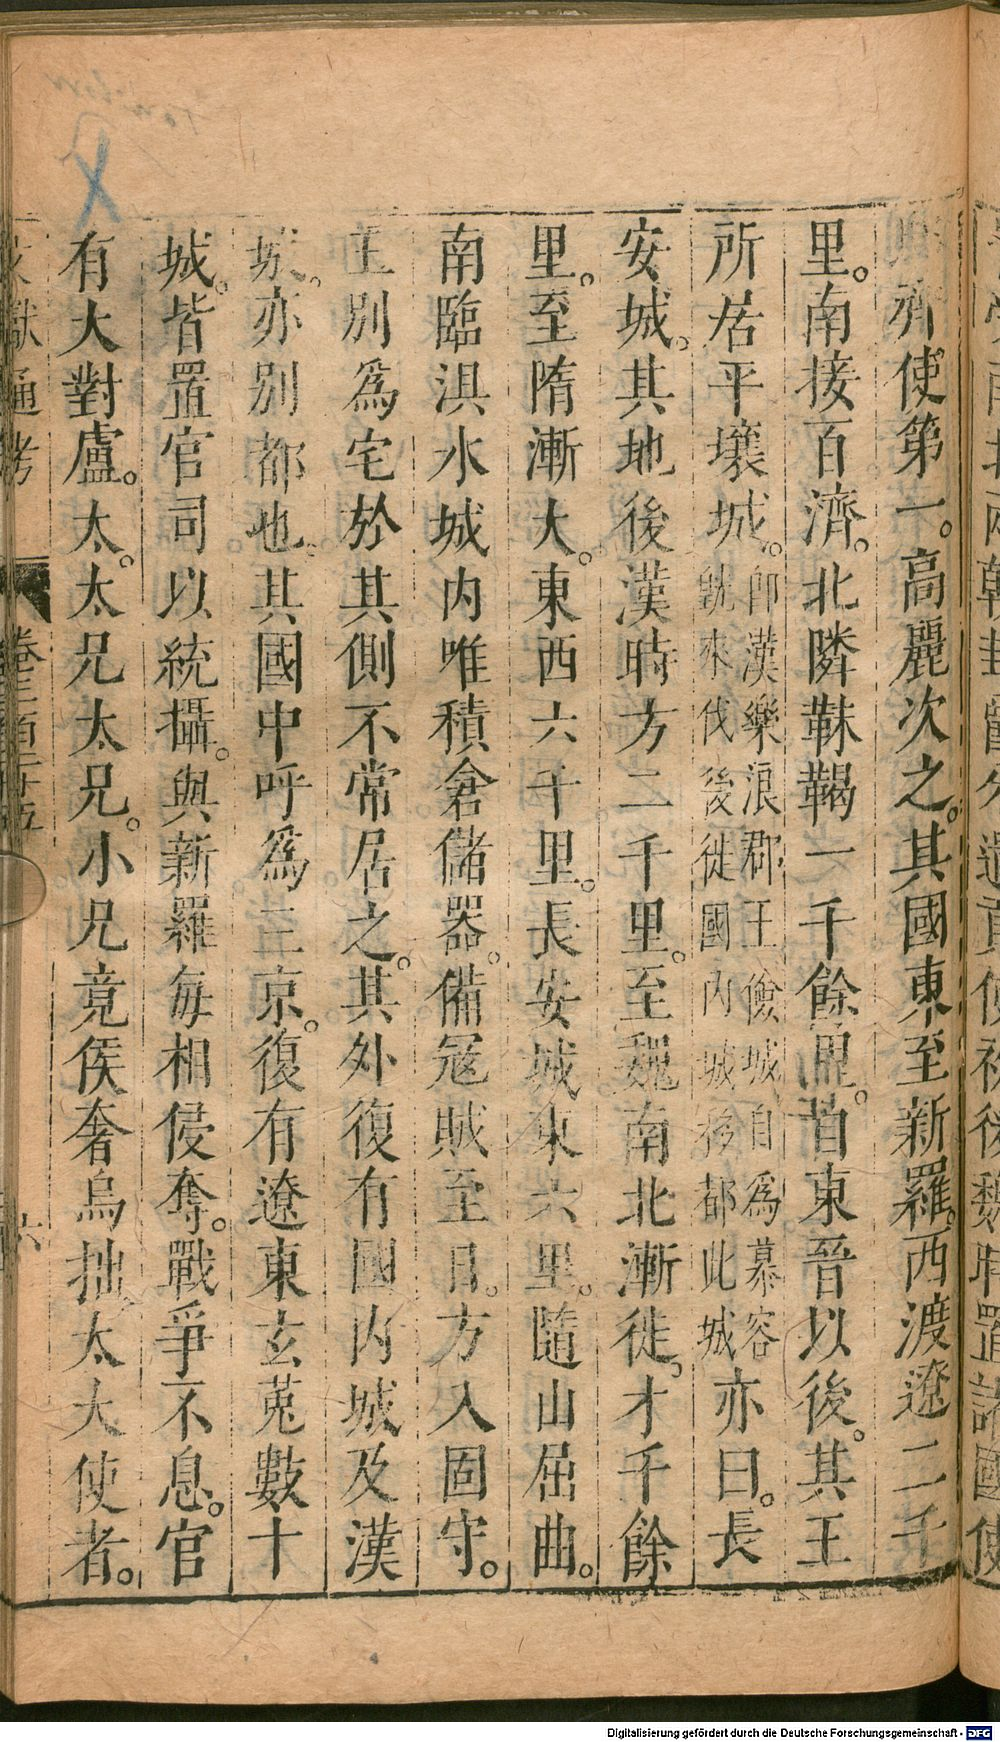 齊使第一。高麗次之。其國東至新羅。西渡遼二千
里。南接百濟。北隣靺鞨一千餘里。自東晉以後。其王
所居平壤城。卽漢樂浪郡王儉城自爲慕容
皝來伐後徙國内城移都此城亦曰。長
安城。其地後漢時方二千里。至魏南北漸徙。才千餘
里。至隋漸大。東西六千里。長安城東六里。隨山屈曲。
南臨浿水城内唯積倉儲器。備寇賊至日。方入固守。
王別爲宅於其側不常居之。其外復有國内城及漢
城。亦別都也。其國中呼爲三京。復有遼東玄菟數十
城。皆置官司以統攝。與新羅每相侵奪。戰爭不息。官
有大對盧。太。太兄太兄。小兄竟侯奢烏拙太大使者。
文獻通考
卷三百二十五
六
Digitalisierung gefördert durch die Deutsche Forschungsgemeinschaft - DFG